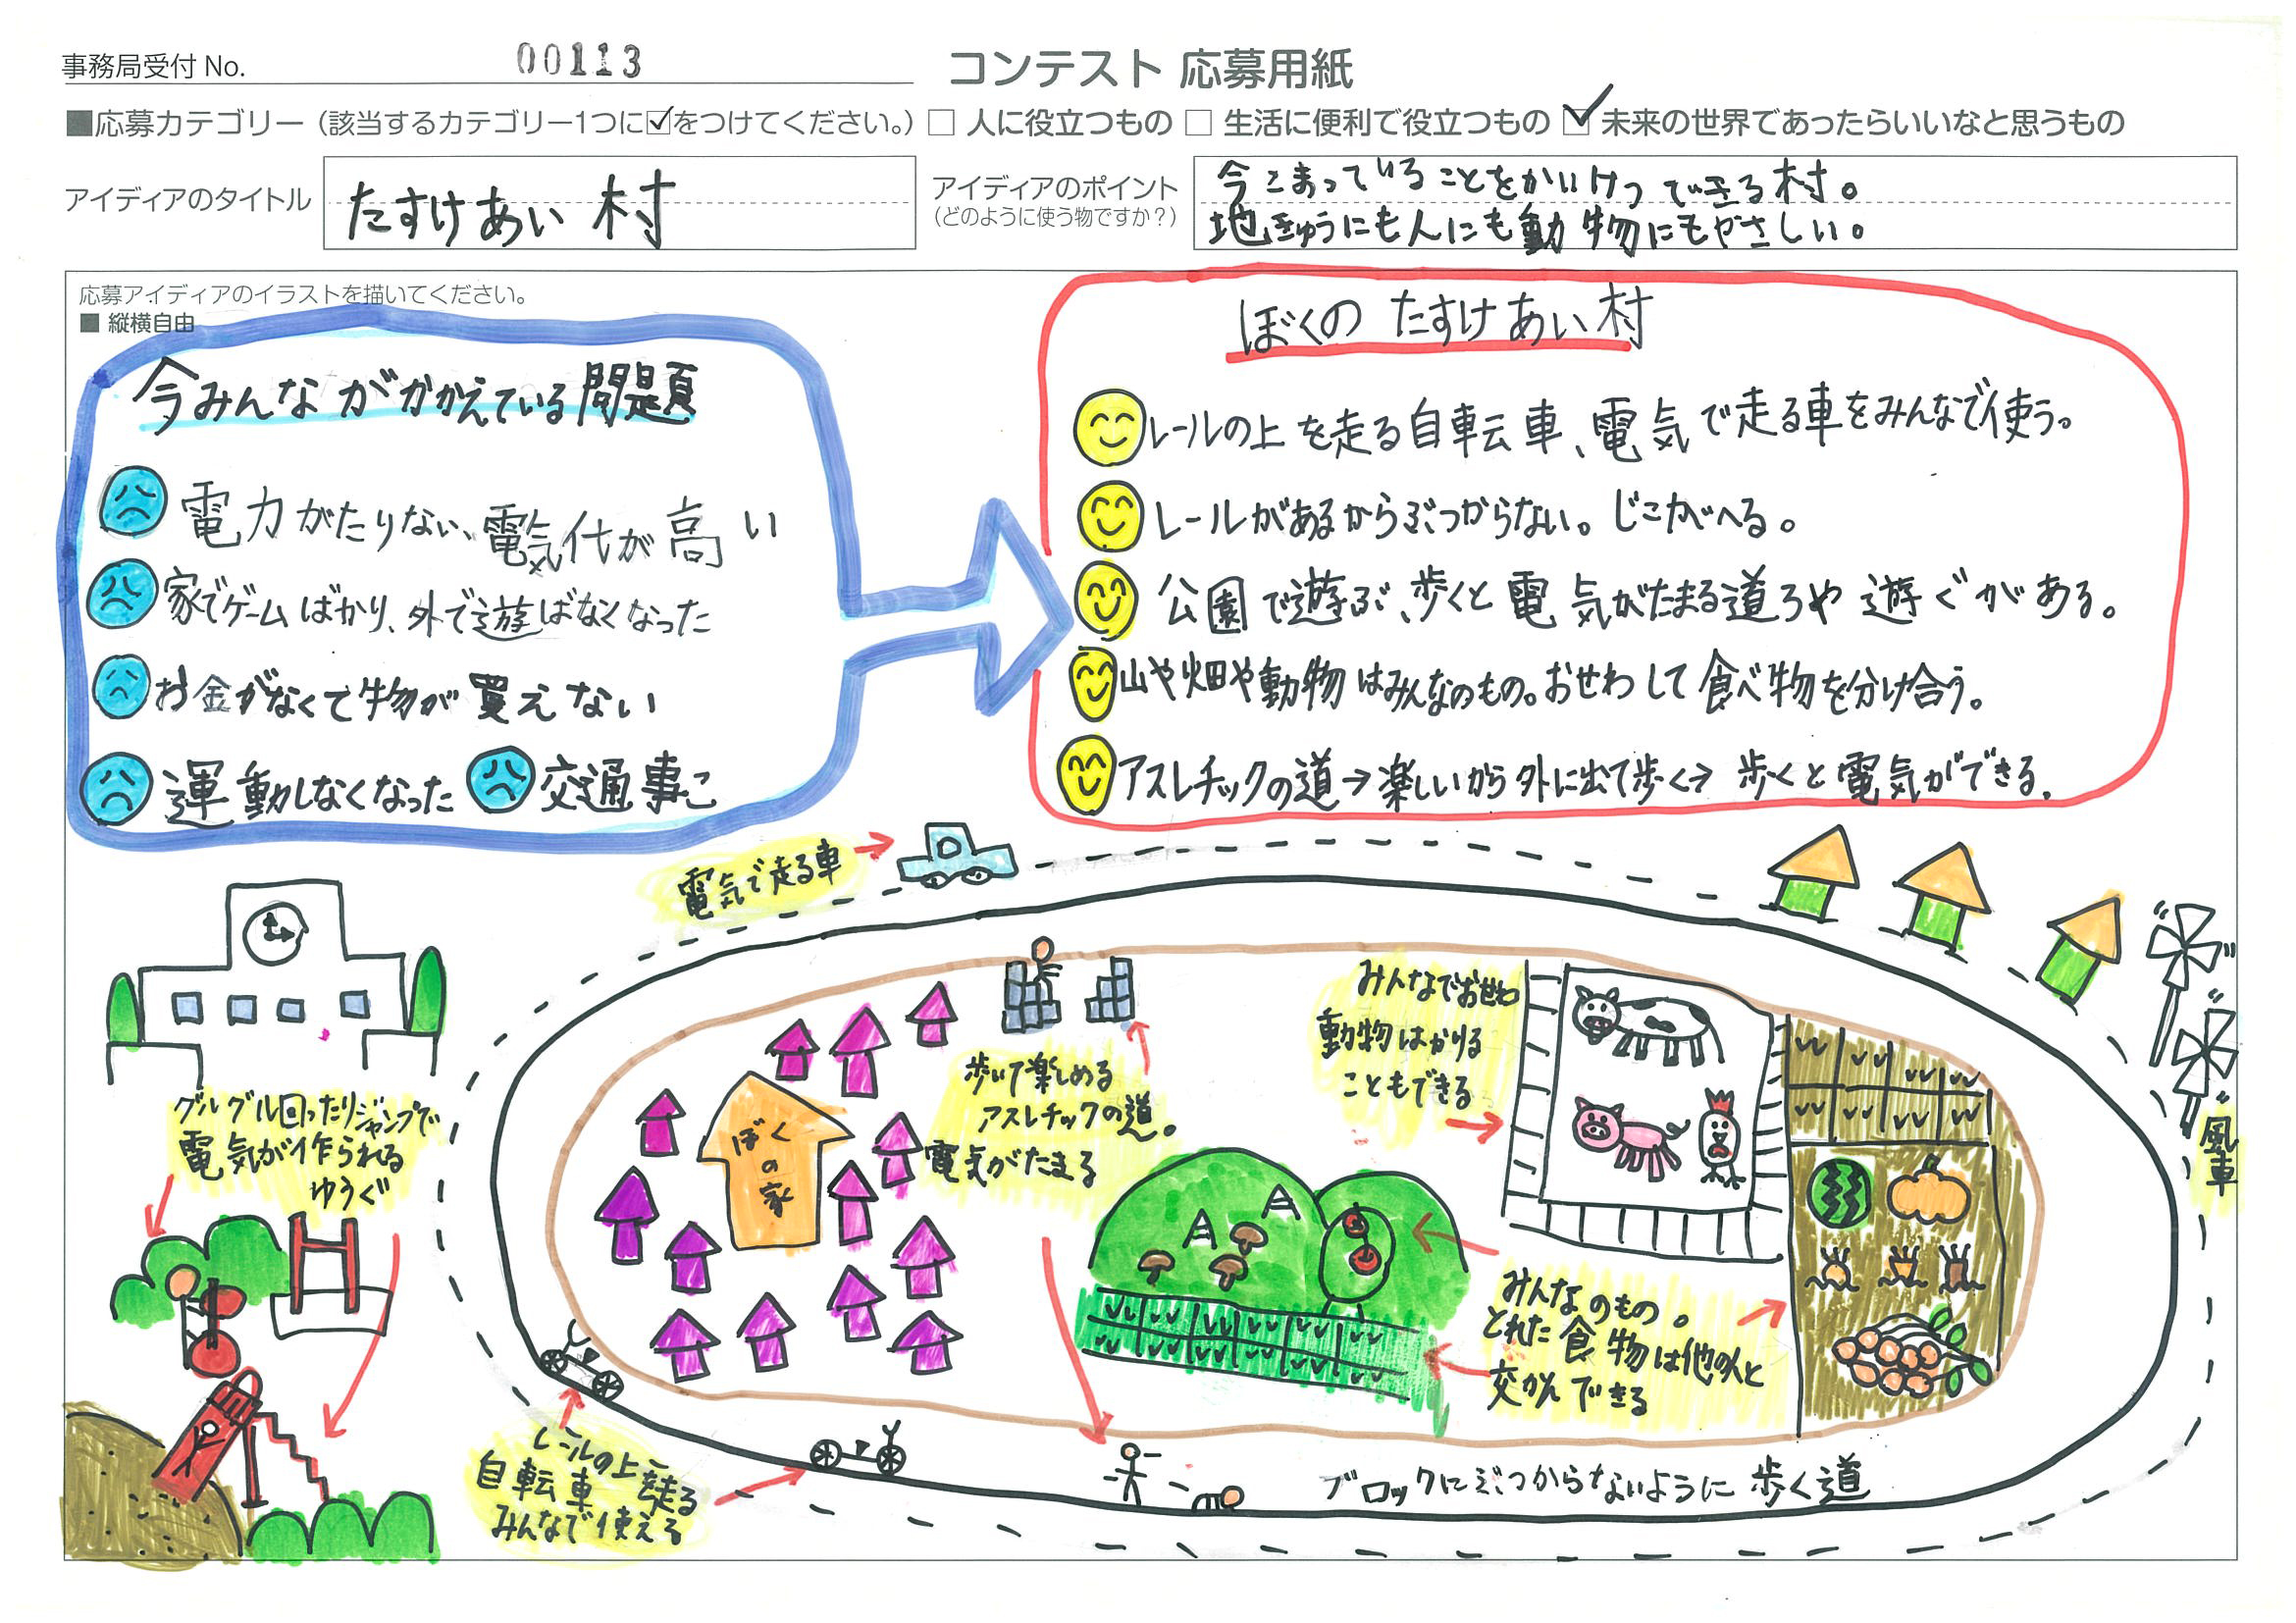 事務局受付 No. 00113
コンテスト 応募用紙
■応募カテゴリー（該当するカテゴリー1つに☑をつけてください。） □ 人に役立つもの □ 生活に便利で役立つもの ☑ 未来の世界であったらいいなと思うもの
アイディアのタイトル
たすけあい村
アイディアのポイント
（どのように使う物ですか？）
今こまっていることをかいけつできる村。
地きゅうにも人にも動物にもやさしい。
応募アイディアのイラストを描いてください。
■ 縦横自由
今みんながかかえている問題
電力がたりない、電気代が高い
家でゲームばかり、外で遊ばなくなった
お金がなくて物が買えない
運動しなくなった 交通事こ
ぼくの たすけあい村
レールの上を走る自転車、電気で走る車をみんなで使う。
レールがあるからぶつからない。じこがへる。
公園で遊ぶ、歩くと電気がたまる道ろや遊ぐがある。
山や畑や動物はみんなのもの。おせわして食べ物を分け合う。
アスレチックの道→楽しいから外に出て歩く→ 歩くと電気ができる。
電気で走る車
みんなでおせわ
動物はかける
こともできる
歩いて楽しめる
アスレチックの道。
電気がたまる
グルグル回ったりジャンプで
電気が作られる
ゆうぐ
ぼく
の
家
風車
みんなのもの。
とれた食物は他の人と
交かんできる
レールの上を走る
自転車
みんなで使える
ブロックにぶつからないように歩く道